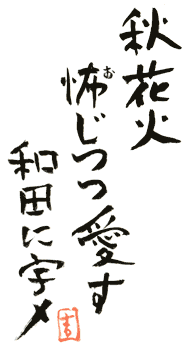 秋花火
怖じつつ愛す
お
和田に宇メ
吉